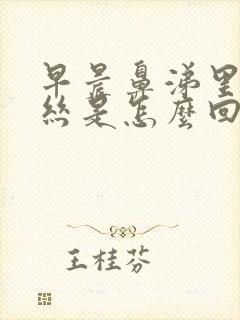 早晨鼻涕里
絲是怎麼回
王桂芬